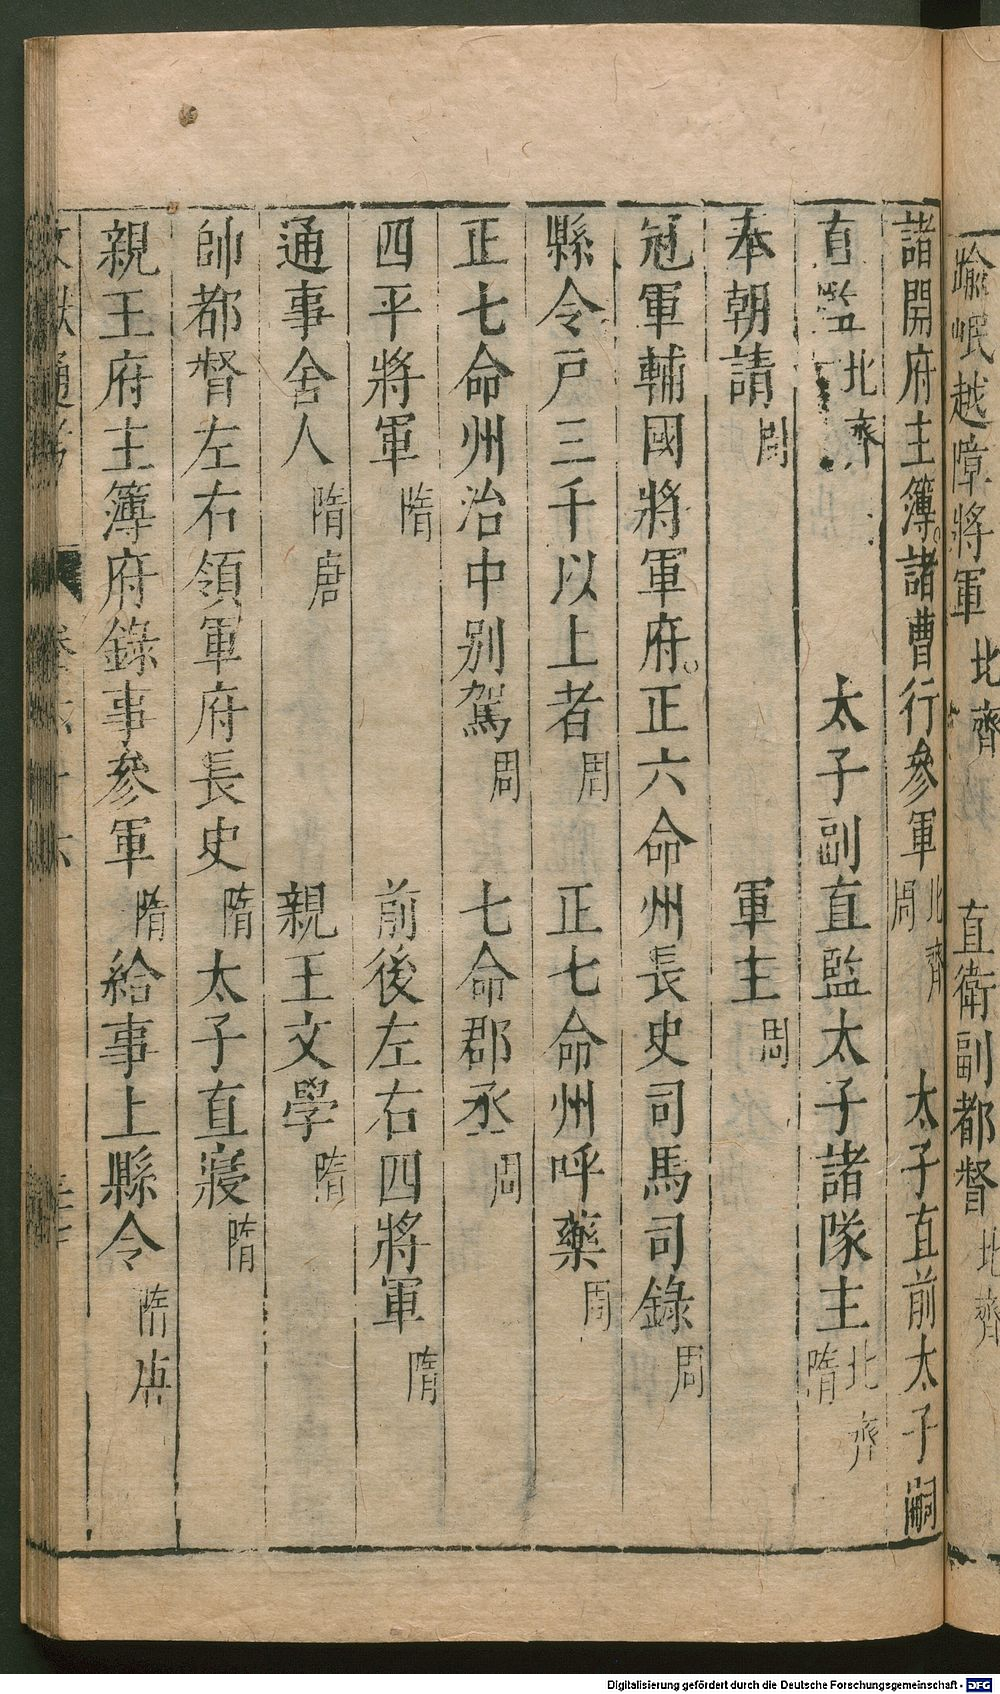 踰岷越障將軍北齊 直衛副都督北齊
諸開府主簿。諸曹行參軍北齊周 太子直前太子副
直監北齊 太子副直監太子諸隊主北齊隋
奉朝請周 軍主周
冠軍輔國將軍府。正六命州長史司馬司錄周
縣令戸三千以上者周 正七命州呼藥周
正七命州治中别駕周 七命郡丞周
四平將軍隋 前後左右四將軍隋
通事舍人隋唐 親王文學隋
帥都督左右領軍府長史隋太子直寢隋
親王府主簿府錄事參軍隋給事上縣令隋唐
文獻通考 卷六十六
Digitalisierung gefördert durch die Deutsche Forschungsgemeinschaft - DFG